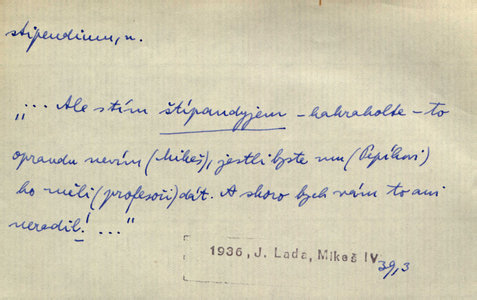 stipendium, n.
„... Ale s tím štípandyjem – hahraholte – to
opraudu nevím (Mikeš), jestli byste mu (Pepíkovi)
ho měli (profesoři) dát. A skoro bych vám to ani
neradil! ..."
1936, J. Lada, Mikeš IV.
39,3